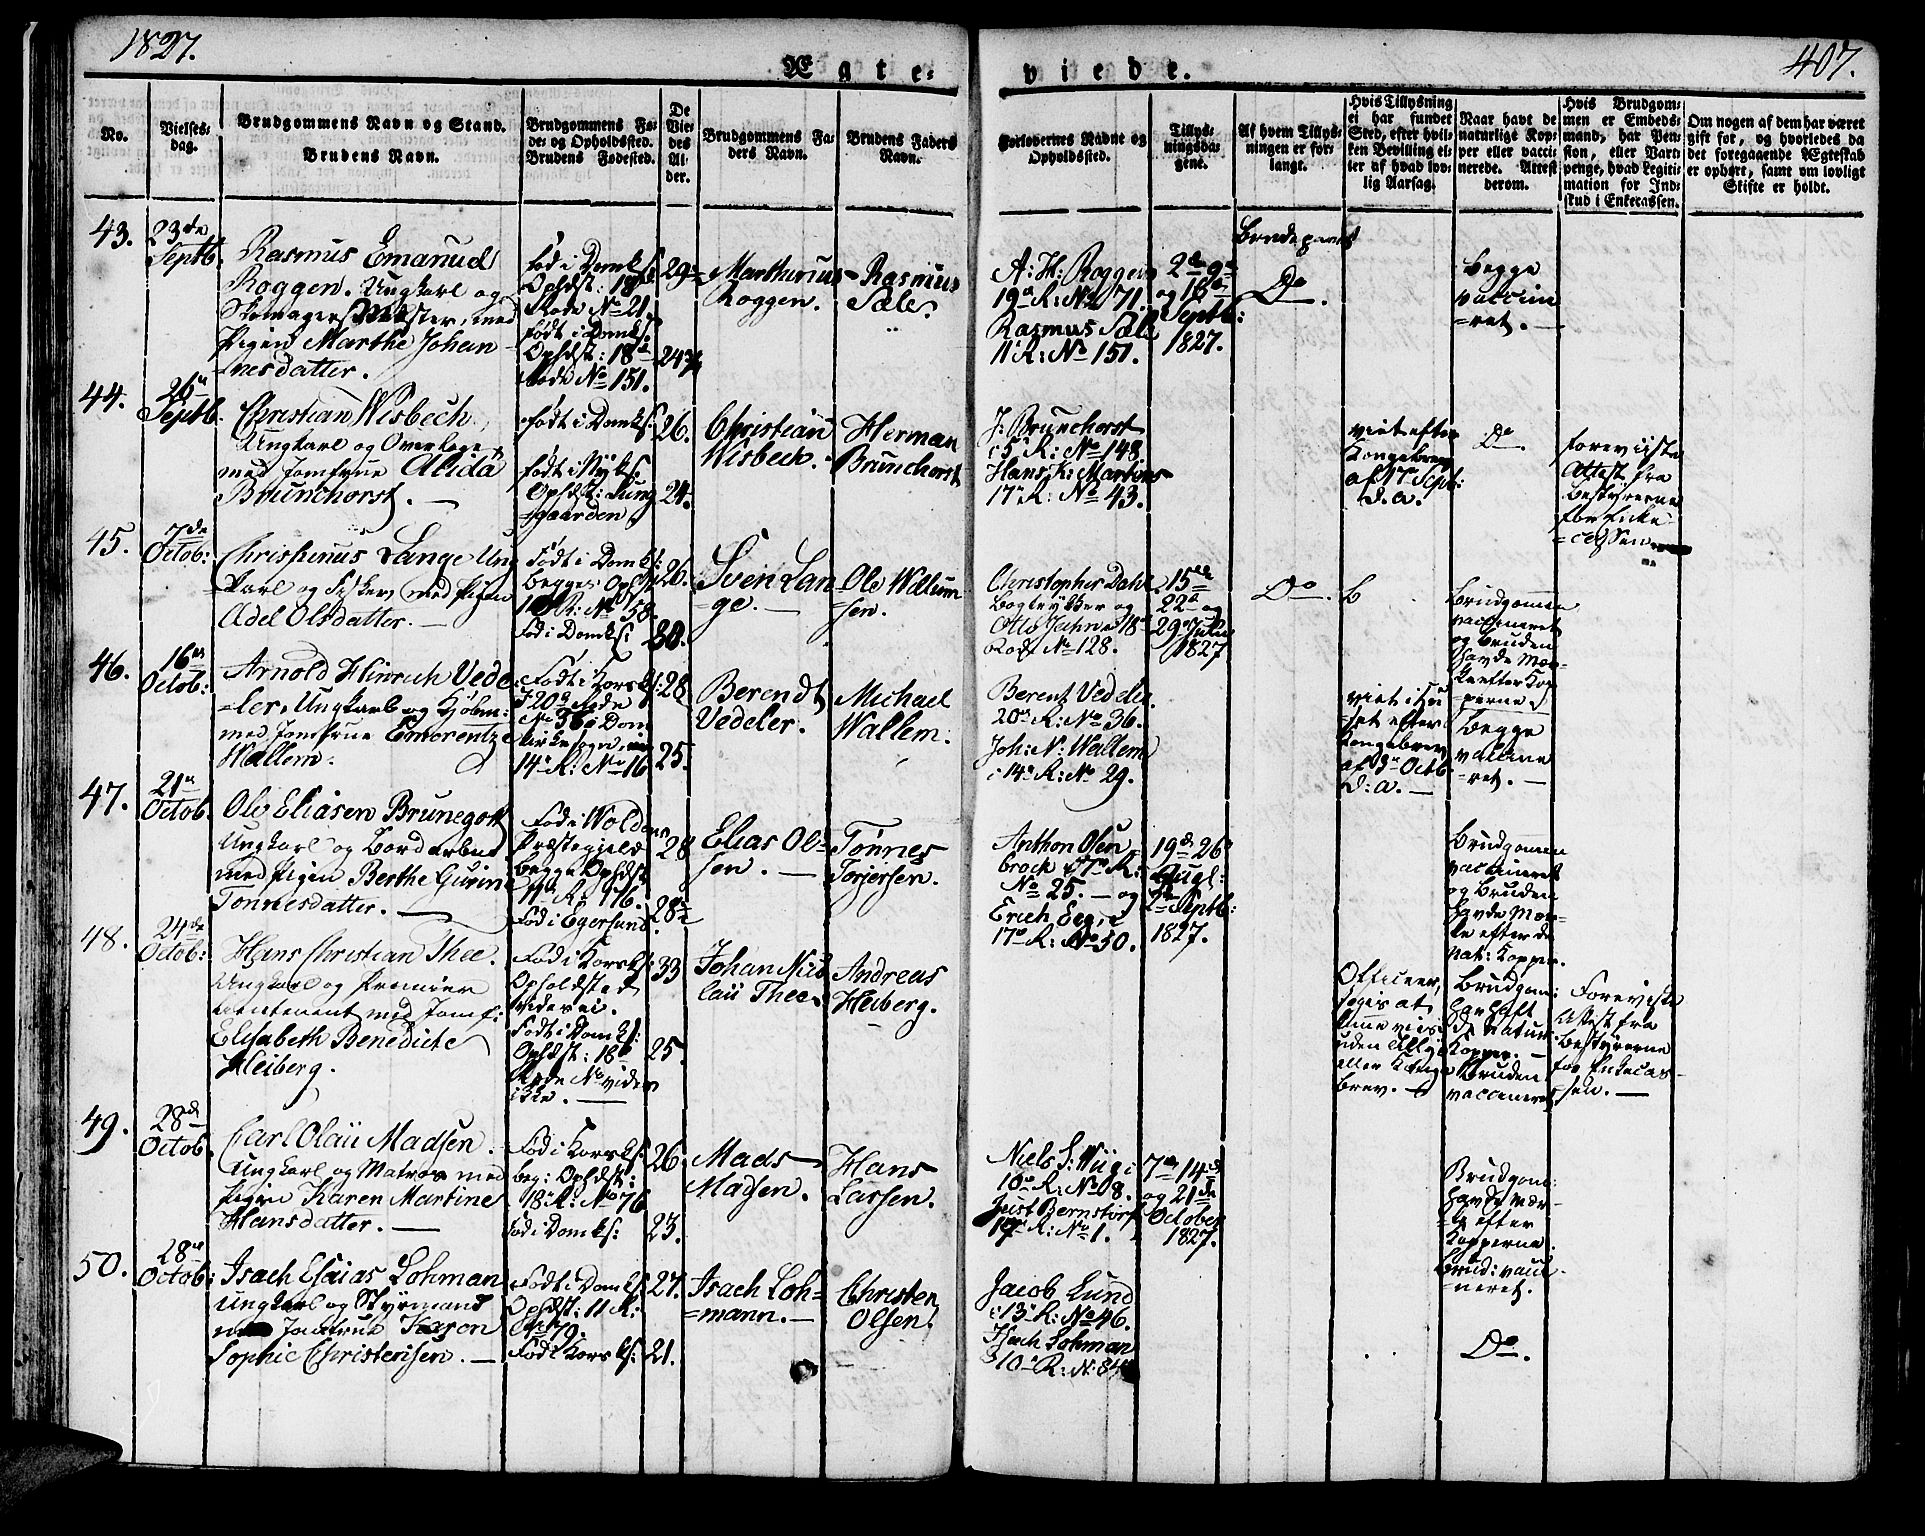 1827.
407.
Ægte-
viede.
No.
Vielses-
dag.
Brudgommens Navn og Stand.
Brudens Navn.
Brudgommens Fø-
de- og Opholdssted.
Brudens Fødested.
De
Vie-
des
Al-
der.
Brudgommens Fa-
ders Navn.
Brudens Faders
Navn.
Forlovernes Navne og
Opholdssted.
Tillys-
ningsda-
gene.
Af hvem Tillys-
ningen er for-
langt.
Hvis Tillysning
ei har fundet
Sted, efter hvil-
ken Bevilling el-
ler af hvad lov-
lig Aarsag.
Naar havt de
naturlige Kop-
per eller vacci-
nerede. Attest
derom.
Hvis Brudgom-
men er Embeds-
mand, har Pen-
sion, eller Vart-
penge, hvad Legiti-
mation for Ind-
skud i Enkecassen.
Om nogen af dem har været
gift før, og hvorledes da
det foregaaende Ægteskab
er ophørt, samt om lovligt
Skifte er holdt.
43.
23de
Septb.
Rasmus Emanuel
Roggen. Ungkarl og
Skomagermester, med
Pigen Marthe Johan-
nesdatter.
Fød i Domks:
Opholdst: 18de
Rode No 21.
Født i Domks:
Ophdst: 18de
Rode No 151.
29
24 3/4
Marthinus
Roggen.
Rasmus
Sæle.
A: H: Roggen
19de R: No 71.
Rasmus Sæle
11 R: No 151.
2de 9de
og 16de
Septb:
1827.
Brudeparret
Do.
begge
vaccine
=ret.
44.
26de
Septb.
Christian Wisbech,
Ungkarl og
med Jomfrue Alida
Brunchorst.
Født i Domks:
født i Nyks:
Ophdst: Lung
=gaarden
26.
24.
Christian
Wisbech.
Herman
Brunchorst
J: Brunchorst
i 5te R: No 148.
Hans K: Martens
17de R: No 43.
viet efter
Kongebrev
af Septb:
d. a.
Do
foreviiste
Attest fra
bestyrerne
for Enke
=cassen.
45.
7de
Octob:
Chrispinus Lange Ung
karl og Fisker med Pigen
Adel Olsdatter.
Født i Domks:
begges Ophst
R: No 58.
Fød i Domks:
26.
30.
Sven Lan
=ge.
Ole Willum
=sen.
Christopher Dahl
Bogtrykker og
Otto Jahn 18de
Rode No 128.
15de
22de og
29de Julii
1827
Do.
Brudgommen
vaccineret
og bruden
havde Mær-
ke efter Kop
perne.
46.
16de
Octob:
Arnold Hinrich Vede
=ler, Ungkarl og Kjøbm:
med Jomfrue Emerentze
Wallem.
Født i Korsks:
i 20de Rode
No 36 i Dom
kirkesogn,
14de R: No 16
28.
25.
Berendt
Vedeler.
Michael
Wallem.
Berent Vedeler.
20de R: No 36.
Joh: N: Wallem
i 14de R: No 29.
viet i Hu
set efter
Kongebrev
af 3de Octb.
d: a.
begge
vaccine
=ret.
47.
21de
Octob.
Ole Eliasen Brunegott
Ungkarl og Bordarbeid
med Pigen Berthe Gurine
Tønnesdatter.
Fød i Wolden
Præstegield
begge Ophdst
11te R: 176.
Fød i Egersund.
28
28 1/2
Elias Ol-
sen.
Tønnes
Torjersen.
Anthon Olsen
brock i 17de R:
No 25. og
Erich Eeg, i
17de R: No 50.
19de 26de
Augl:
2de Septb:
1827.
Brudgommen
vaccineret
og bruden
havde Mær-
ke efter de
nat: Kopper.
48.
24de
Octob:
Hans Christian Thee.
Ungkarl og Premier
Lieutenant med Jomf:
Elisabeth Benedicte
Heiberg.
Fød i Korsks:
Opholdsted
vides ei.
Født i Domks:
Ophdst: 18de
Rode No vides
ikke.
33
25.
Johan Nico
laii Thee.
Andreas
Heiberg.
Officeer,
siges at
kunne vies
uden Tillysn
eller Konge
brev.
Brudgom:
har haft
de Natur:
Kopper.
Bruden
vaccineret
Foreviste
Attest fra
bestyrerne
for Enkecas-
sen.
49.
28de
Octob.
Carl Olaii Madsen.
Ungkarl og Matros med
Pigen Karen Martine
Hansdatter.
Fød i Korsks:
beg: Ophdst:
18de R: No 76
Fød i Domks:
26
23.
Mads
Madsen.
Hans
Larsen.
Niels S: Wiig i
10de R: No 8.
Just Bernstorf
19de R: No 1.
7de 14de
og 21de
October
1827.
Brudgom:
havde Mær-
ke efter
Kopperne.
Brud: vacci-
neret.
50.
28de
Octob:
Isach Esaias Lohman
Ungkarl og Styrmand
med Jomfrue Karen
Sophie Christensen.
Født i Domks:
Ophdst: 11 R:
No 79.
Fød i Korsks:
27.
21.
Isach Loh-
=mann.
Christen
Olsen.
Jacob Lund
i 13de R: No 46.
Isach Lohman
i 10de R: N: 84
Do.